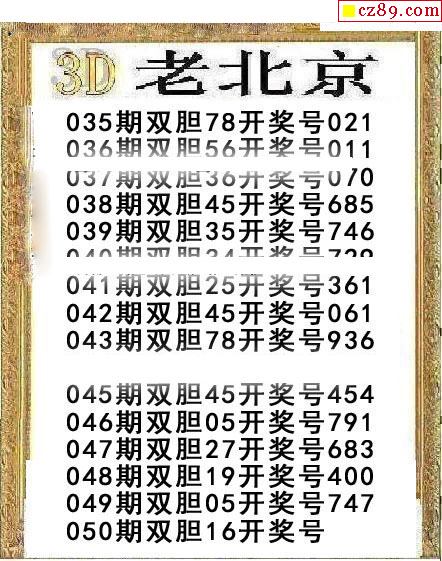 cz89.com
3D 老北京
035期双胆78开奖号021
036期双胆56开奖号011
037期双胆36开奖号070
038期双胆45开奖号685
039期双胆35开奖号746
040期双胆34开奖号739
041期双胆25开奖号361
042期双胆45开奖号061
043期双胆78开奖号936
045期双胆45开奖号454
046期双胆05开奖号791
047期双胆27开奖号683
048期双胆19开奖号400
049期双胆05开奖号747
050期双胆16开奖号